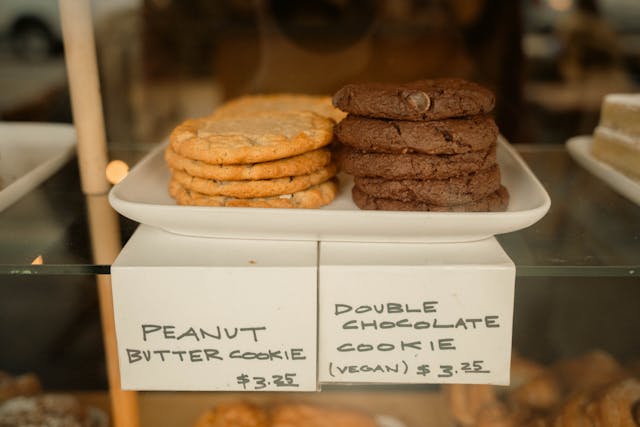 PEANUT
BUTTER COOKIE
$3.25
DOUBLE
CHOCOLATE
COOKIE
(VEGAN) $3.25